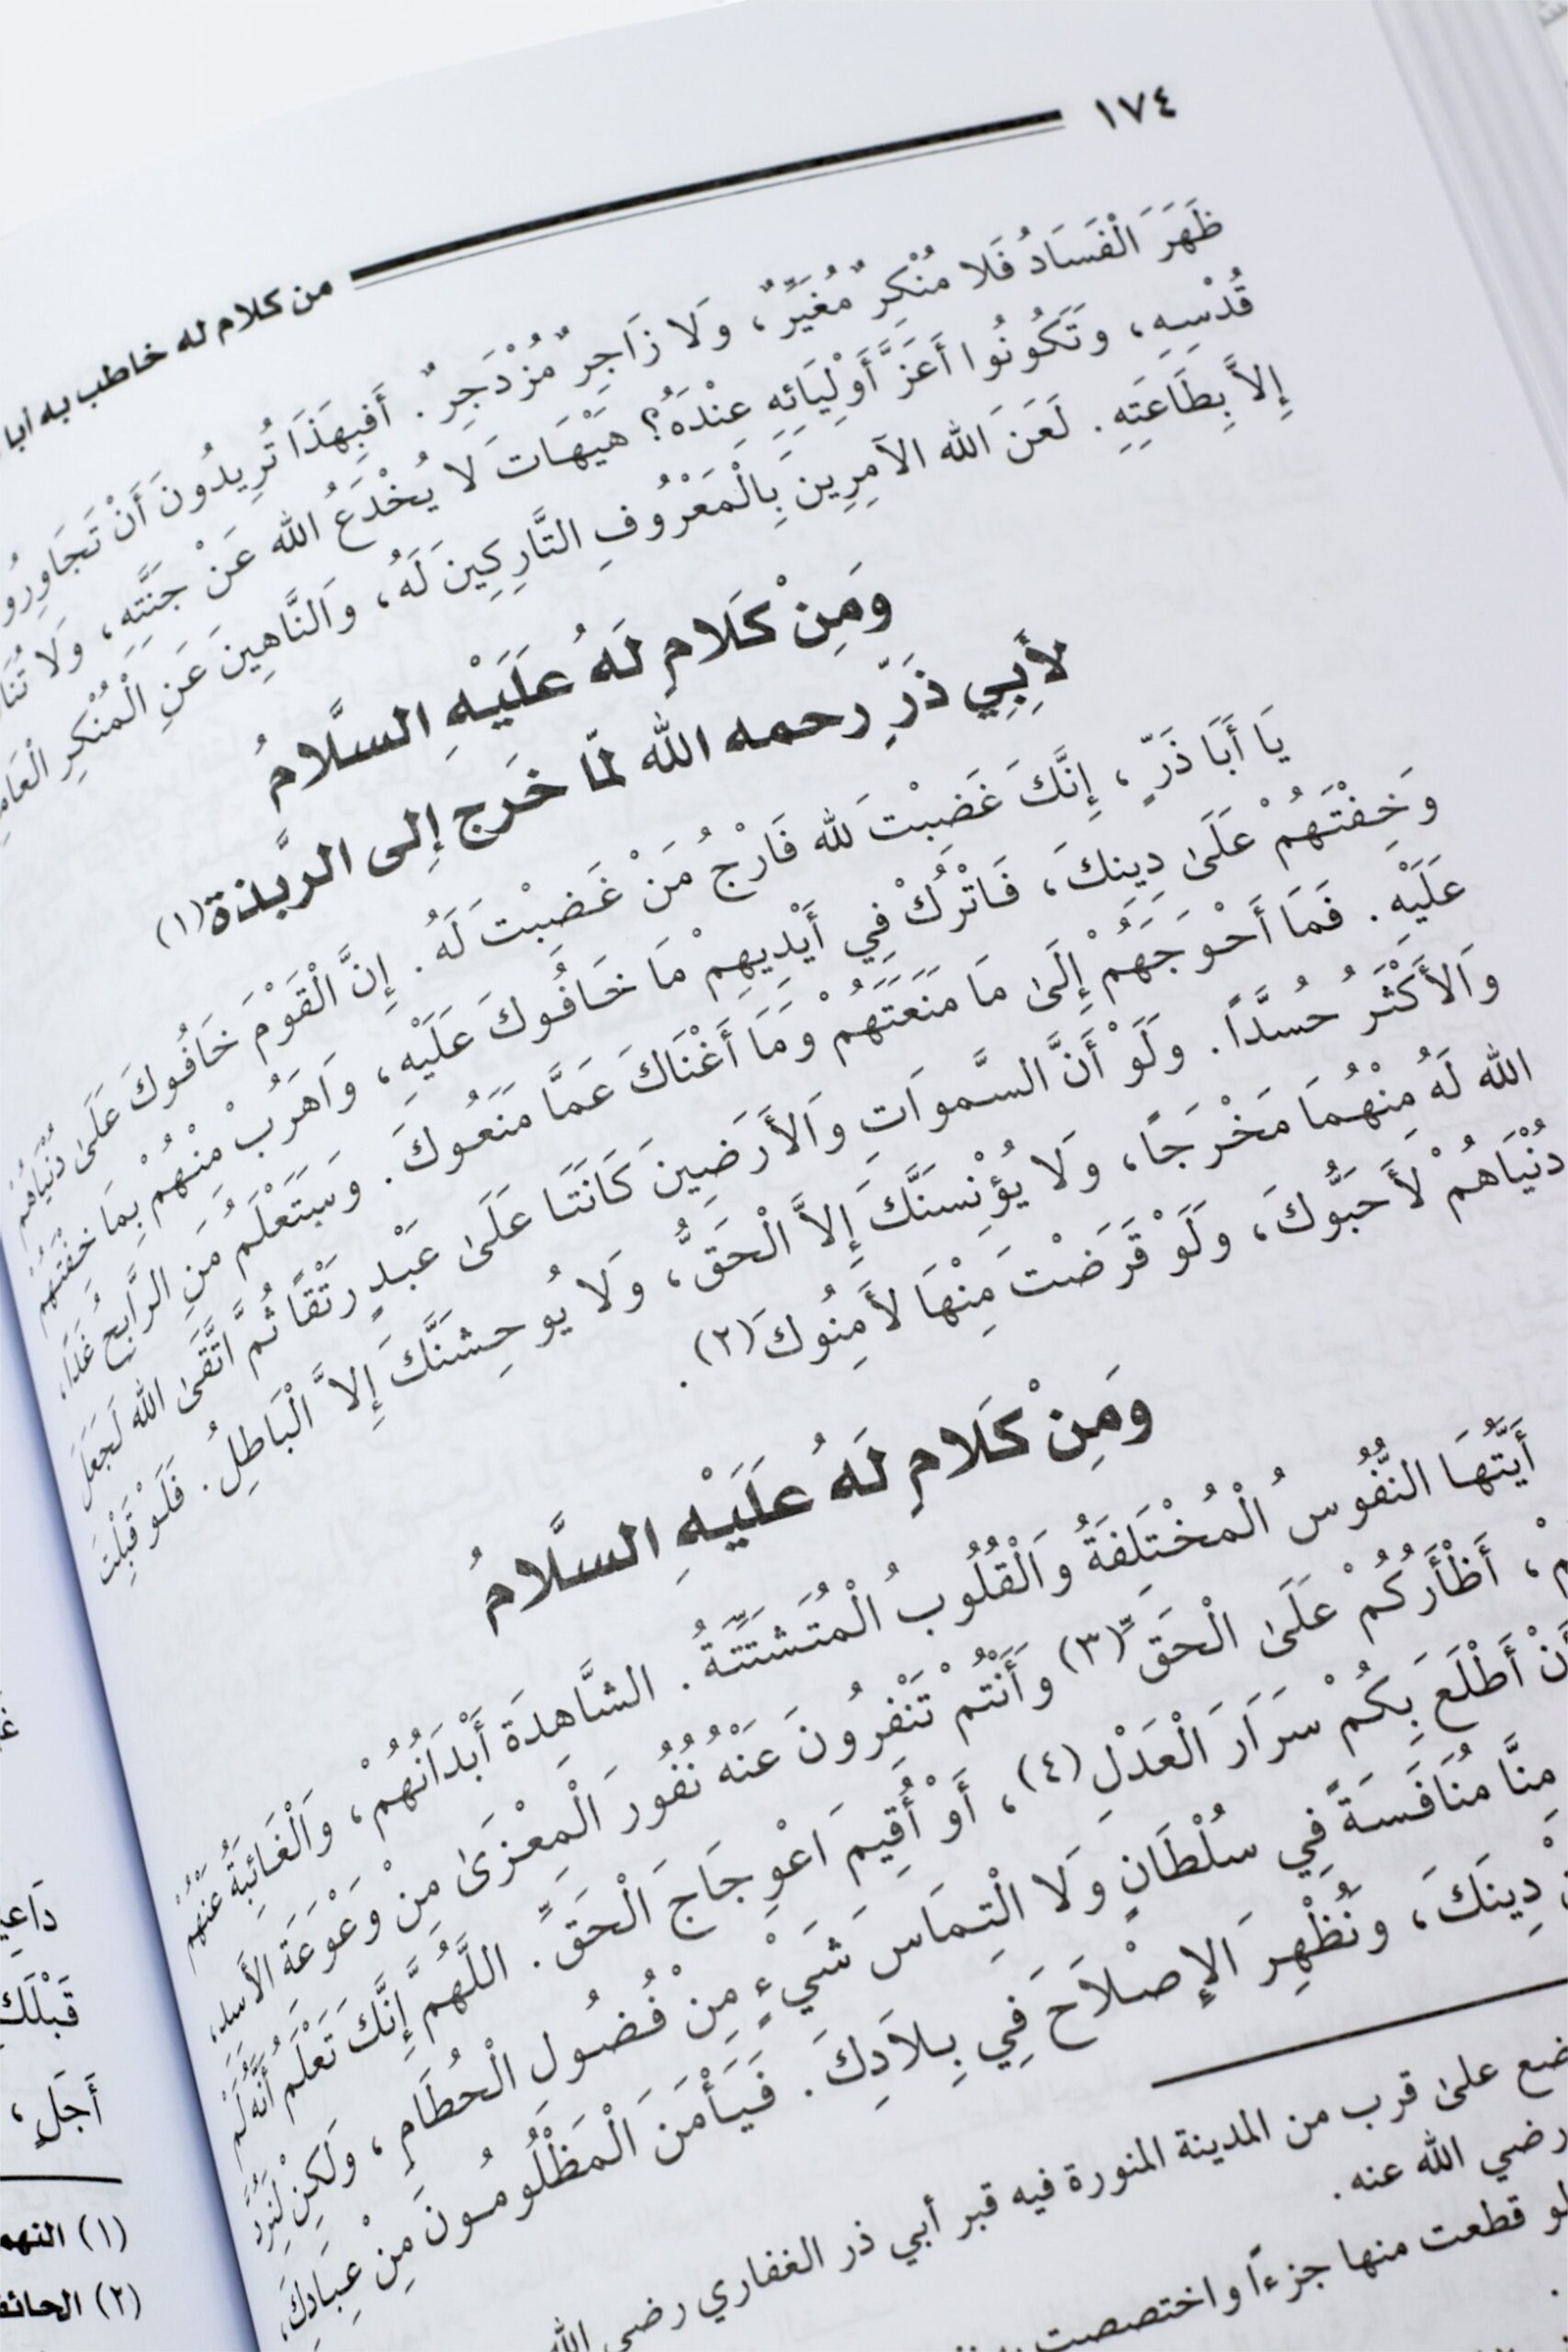 ١٧٤
من كلام له خاطب به أبا
ظَهَرَ الْفَسَادُ فَلا مُنْكِرٌ مُغَيِّرٌ، وَلَا زَاجِرٌ مُزْدَجِرٌ. أَفَبِهَذَا تُرِيدُونَ أَنْ تَجَاوِرُو
قُدْسِهِ، وَتَكُونُوا أَعَزَّ أَوْلِيَائِهِ عِنْدَهُ؟ هَيْهَاتَ لا يُخْدَعُ الله عَنْ جَنَّتِهِ، وَلا تُنَا
إِلاَّ بِطَاعَتِهِ. لَعَنَ الله الآمِرِينَ بِالْمَعْرُوفِ التَّارِكِينَ لَهُ، وَالنَّاهِينَ عَنِ الْمُنْكِرِ الْعَامِ
وَمِنْ كَلامٍ لَهُ عَلَيْهِ السَّلَامُ
لأَبِي ذَرٍّ رحمه الله لمّا خَرج إِلى الربَّذة(١)
يَا أَبَا ذَرٍّ، إِنَّكَ غَضِبْتَ لله فَارْجُ مَنْ غَضِبْتَ لَهُ. إِنَّ الْقَوْمَ خَافُوكَ عَلَىٰ دُنْيَاهُمْ
وَخِفْتَهُمْ عَلَىٰ دِينِكَ، فَاتْرُكْ فِي أَيْدِيهِمْ مَا خَافُوكَ عَلَيْهِ، وَاهْرُبْ مِنْهُمْ بِمَا خِفْتَهُمْ
عَلَيْهِ. فَمَا أَحْوَجَهُمْ إِلَىٰ مَا مَنَعَتَهُمْ وَمَا أَغْنَاكَ عَمَّا مَنَعُوكَ. وَسَتَعْلَمُ مَنِ الرَّابِحُ غَداً،
وَالأَكْثَرُ حُسَّداً. وَلَوْ أَنَّ السَّموَاتِ وَالأَرَضِينَ كَانَتَا عَلَىٰ عَبْدٍ رَتْقًا ثُمَّ اتَّقَىٰ الله لَجَعَلَ
الله لَهُ مِنْهُمَا مَخْرَجًا، وَلَا يُؤْنِسَنَّكَ إِلاَّ الْحَقُّ، وَلَا يُوحِشَنَّكَ إِلاَّ الْبَاطِلُ. فَلَوْ قَبِلْتَ
دُنْيَاهُمْ لأَحَبُّوكَ، وَلَوْ قَرَضْتَ مِنْهَا لأَمِنُوكَ(٢).
وَمِنْ كَلَامٍ لَهُ عَلَيْهِ السَّلَامُ
أَيَّتُهَا النُّفُوسُ الْمُخْتَلِفَةُ وَالْقُلُوبُ الْمُتَشَتِّتَةُ. الشَّاهِدَة أَبْدَانُهُمْ، وَالْغَائِبَةُ عَنْهُمْ
أَظْأَرُكُمْ عَلَىٰ الْحَقِّ(٣) وَأَنْتُمْ تَنْفِرُونَ عَنْهُ نُفُورَ الْمِعْزَىٰ مِنْ وَعْوَعَةِ الأَسد،
أَطْلَعَ بِكُمْ سَرَارَ الْعَدْلِ(٤)، أَوْ أُقِيمَ اعْوِجَاجَ الْحَقِّ. اللَّهُمَّ إِنَّكَ تَعْلَمُ أَنَّهُ لَمْ
مِنَّا مُنَافَسَةً فِي سُلْطَانٍ وَلَا الْتِمَاسَ شَيْءٍ مِنْ فُضُولِ الْحُطَامِ، وَلَكِنْ لِنَرُدَّ
دِينِكَ، وَنُظْهِرَ الإِصْلَاحَ فِي بِلاَدِكَ. فَيَأْمَنَ الْمَظْلُومُونَ مِنْ عِبَادِكَ،
ضع علىٰ قرب من المدينة المنورة فيه قبر أبي ذر الغفاري رضي الله
رضي الله عنه.
لو قطعت منها جزءاً واختصصت
دَاعِيَ
قَبْلَكَ
أَجَلٍ،
(١) النهم
(٢) الحائف